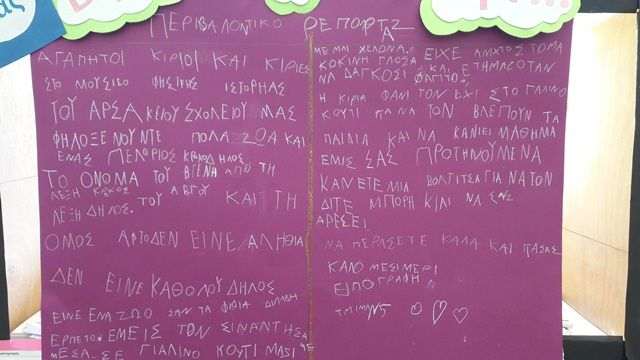 ΠΕΡΙΒΑΛΟΝΤΙΚΟ ΡΕΠΟΡΤΑΖ
ΑΓΑΠΗΤΟΙ ΚΙΡΙΟΙ ΚΑΙ ΚΙΡΙΕΣ
ΣΤΟ ΜΟΥΣΙΟ ΦΗΣΙΚΗΣ ΙΣΤΟΡΗΑΣ
ΤΟΥ ΑΡΣΑΚΕΙΟΥ ΣΧΟΛΕΙΟΥ ΜΑΣ
ΦΗΛΟΞΕΝΟΥΝΤΕ ΠΟΛΑ ΖΩΑ ΚΑΙ
ΕΝΑΣ ΠΕΛΟΡΙΟΣ ΚΡΟΚΟΔΗΛΟΣ
ΤΟ ΟΝΟΜΑ ΤΟΥ ΒΓΕΝΗ ΑΠΟ ΤΗ
ΛΕΞΗ ΚΡΟΚΟΣ ΤΟΥ ΑΒΓΟΥ ΚΑΙ ΤΗ
ΛΕΞΗ ΔΗΛΟΣ.
ΟΜΟΣ ΑΦΤΟ ΔΕΝ ΕΙΝΕ ΑΛΗΘΙΑ
ΔΕΝ ΕΙΝΕ ΚΑΘΟΛΟΥ ΔΗΛΟΣ
ΕΙΝΕ ΕΝΑ ΖΩΟ ΣΑΝ ΤΑ ΦΙΔΙΑ ΔΙΛΑΔΗ
ΕΡΠΕΤΟ ΕΜΕΙΣ ΤΟΝ ΣΙΝΑΝΤΗΣΑ
ΜΕΣΑ ΣΕ ΓΙΑΛΙΝΟ ΚΟΥΤΙ ΜΑΖΙ
ΜΕ ΜΙΑ ΧΕΛΟΝΑ. ΕΙΧΕ ΑΝΙΧΤΟ ΣΤΟΜΑ
ΚΟΚΙΝΗ ΓΛΟΣΑ ΚΑΙ ΕΤΗΜΑΖΟΤΑΝ
ΝΑ ΔΑΓΚΟΣΙ
Η ΚΙΡΙΑ ΦΑΝΙ ΤΟΝ ΕΧΙ ΣΤΟ ΓΙΑΛΙΝΟ
ΚΟΥΤΙ ΓΙΑ ΝΑ ΤΟΝ ΒΛΕΠΟΥΝ ΤΑ
ΠΑΙΔΙΑ ΚΑΙ ΝΑ ΚΑΝΙΕΙ ΜΑΘΗΜΑ
ΕΜΙΣ ΣΑΣ ΠΡΟΤΗΝΟΥΜΕ ΝΑ
ΚΑΝΕΤΕ ΜΙΑ ΒΟΛΤΙΤΣΑ ΓΙΑ ΝΑ ΤΟΝ
ΔΙΤΕ ΜΠΟΡΗ ΚΙΑΙ ΝΑ ΣΑΣ
ΑΡΕΣΕΙ
ΝΑ ΠΕΡΑΣΕΤΕ ΚΑΛΑ ΚΑΙ
ΚΑΛΟ ΜΕΣΙΜΕΡΙ
ΕΙΠΟΓΡΑΦΗ